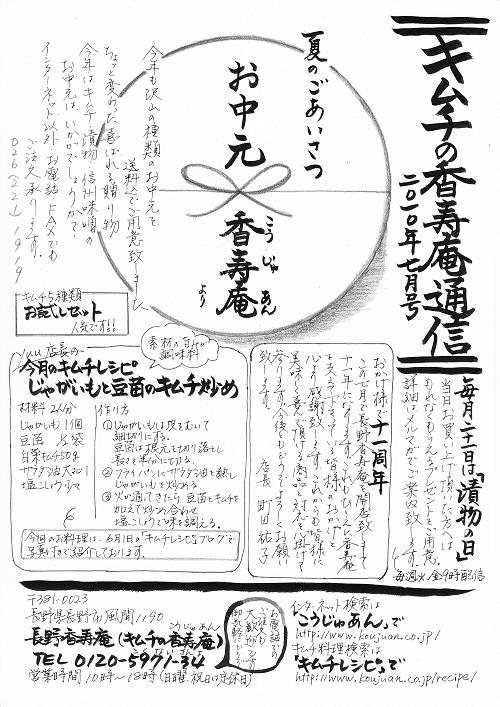 キムチの香寿庵通信
二〇一〇年七月号
夏のごあいさつ
お中元
こうじゅあん
香寿庵
より
今年も沢山の種類のお中元を
送料込でご用意致しました
ちょっと変わった喜ばれる贈り物
今年はキムチ・漬物・信州味噌の
お中元はいかがでしょうか?
インターネット以外お電話・FAXでも
ご注文承ります。
026(221)1919
キムチ5種類
お試しセット
人気です!!
毎月二十一日は「漬物の日」
当日お買い上げ頂いた方へは
もれなくもらえるプレゼントを、ご用意。
詳細はメルマガでご案内致します。
毎週火、金9時配信
おかげ様で十一周年
この七月で長野香寿庵を開店致しまして
十一年になります。これもひとえに香寿庵
を支えて下さっている皆様のおかげと
心より感謝致します。これからも皆様に
美味しく喜んで頂ける商品と対応を心掛けて
参ります。今後もどうぞよろしくお願い
致します。
店長 町田祐子
yuu店長の
今月のキムチレシピ
じゃがいもと豆苗のキムチ炒め
素材の旨味が
調味料
材料 2人分
じゃがいも 1個
豆苗 1/2袋
白菜キムチ 50g
サラダ油 大さじ1
塩こしょう 少々
作り方
①じゃがいもは皮をむいて
細切りにする。
豆苗は根元を切り落とし
長さを半分に切る。
②フライパンにサラダ油を熱し
じゃがいもを炒める。
③火が通ってきたら、豆苗とキムチを
加えて炒め合わせ
塩こしょうで味を調える。
今回のお料理は、6月1日の「キムチレシピブログ」で
写真付きで紹介しております。
〒381-0023
長野県長野市風間1190
こうじゅあん
長野香寿庵(キムチの香寿庵)
TEL 0120-5971-34
営業時間 10時~18時(日曜、祝日は定休日)
お電話での
ご注文も
大歓迎です
インターネット検索は
「こうじゅあん」で
http://www.koujuan.co.jp/
キムチ料理検索は
「キムチレシピ」で
http://www.koujuan.co.jp/recipe/